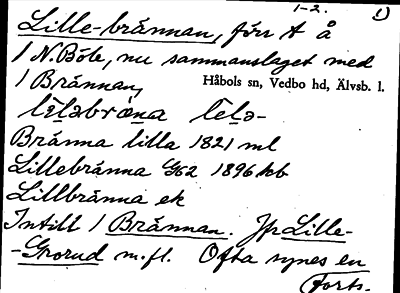 1-2. 1)
Lille-brännan, förr t å
1 N. Böle, nu sammanslaget med
1 Brännan,
Håbols sn, Vedbo hd, Älvsb. l.
lɪlabrɛna lɪla-
Bränna lilla 1821 ml
Lillebränna G62 1896 kb
Lillbränna ek
Intill 1 Brännan. Jfr Lille-
-Grorud m.fl. Ofta synes en
(Forts.